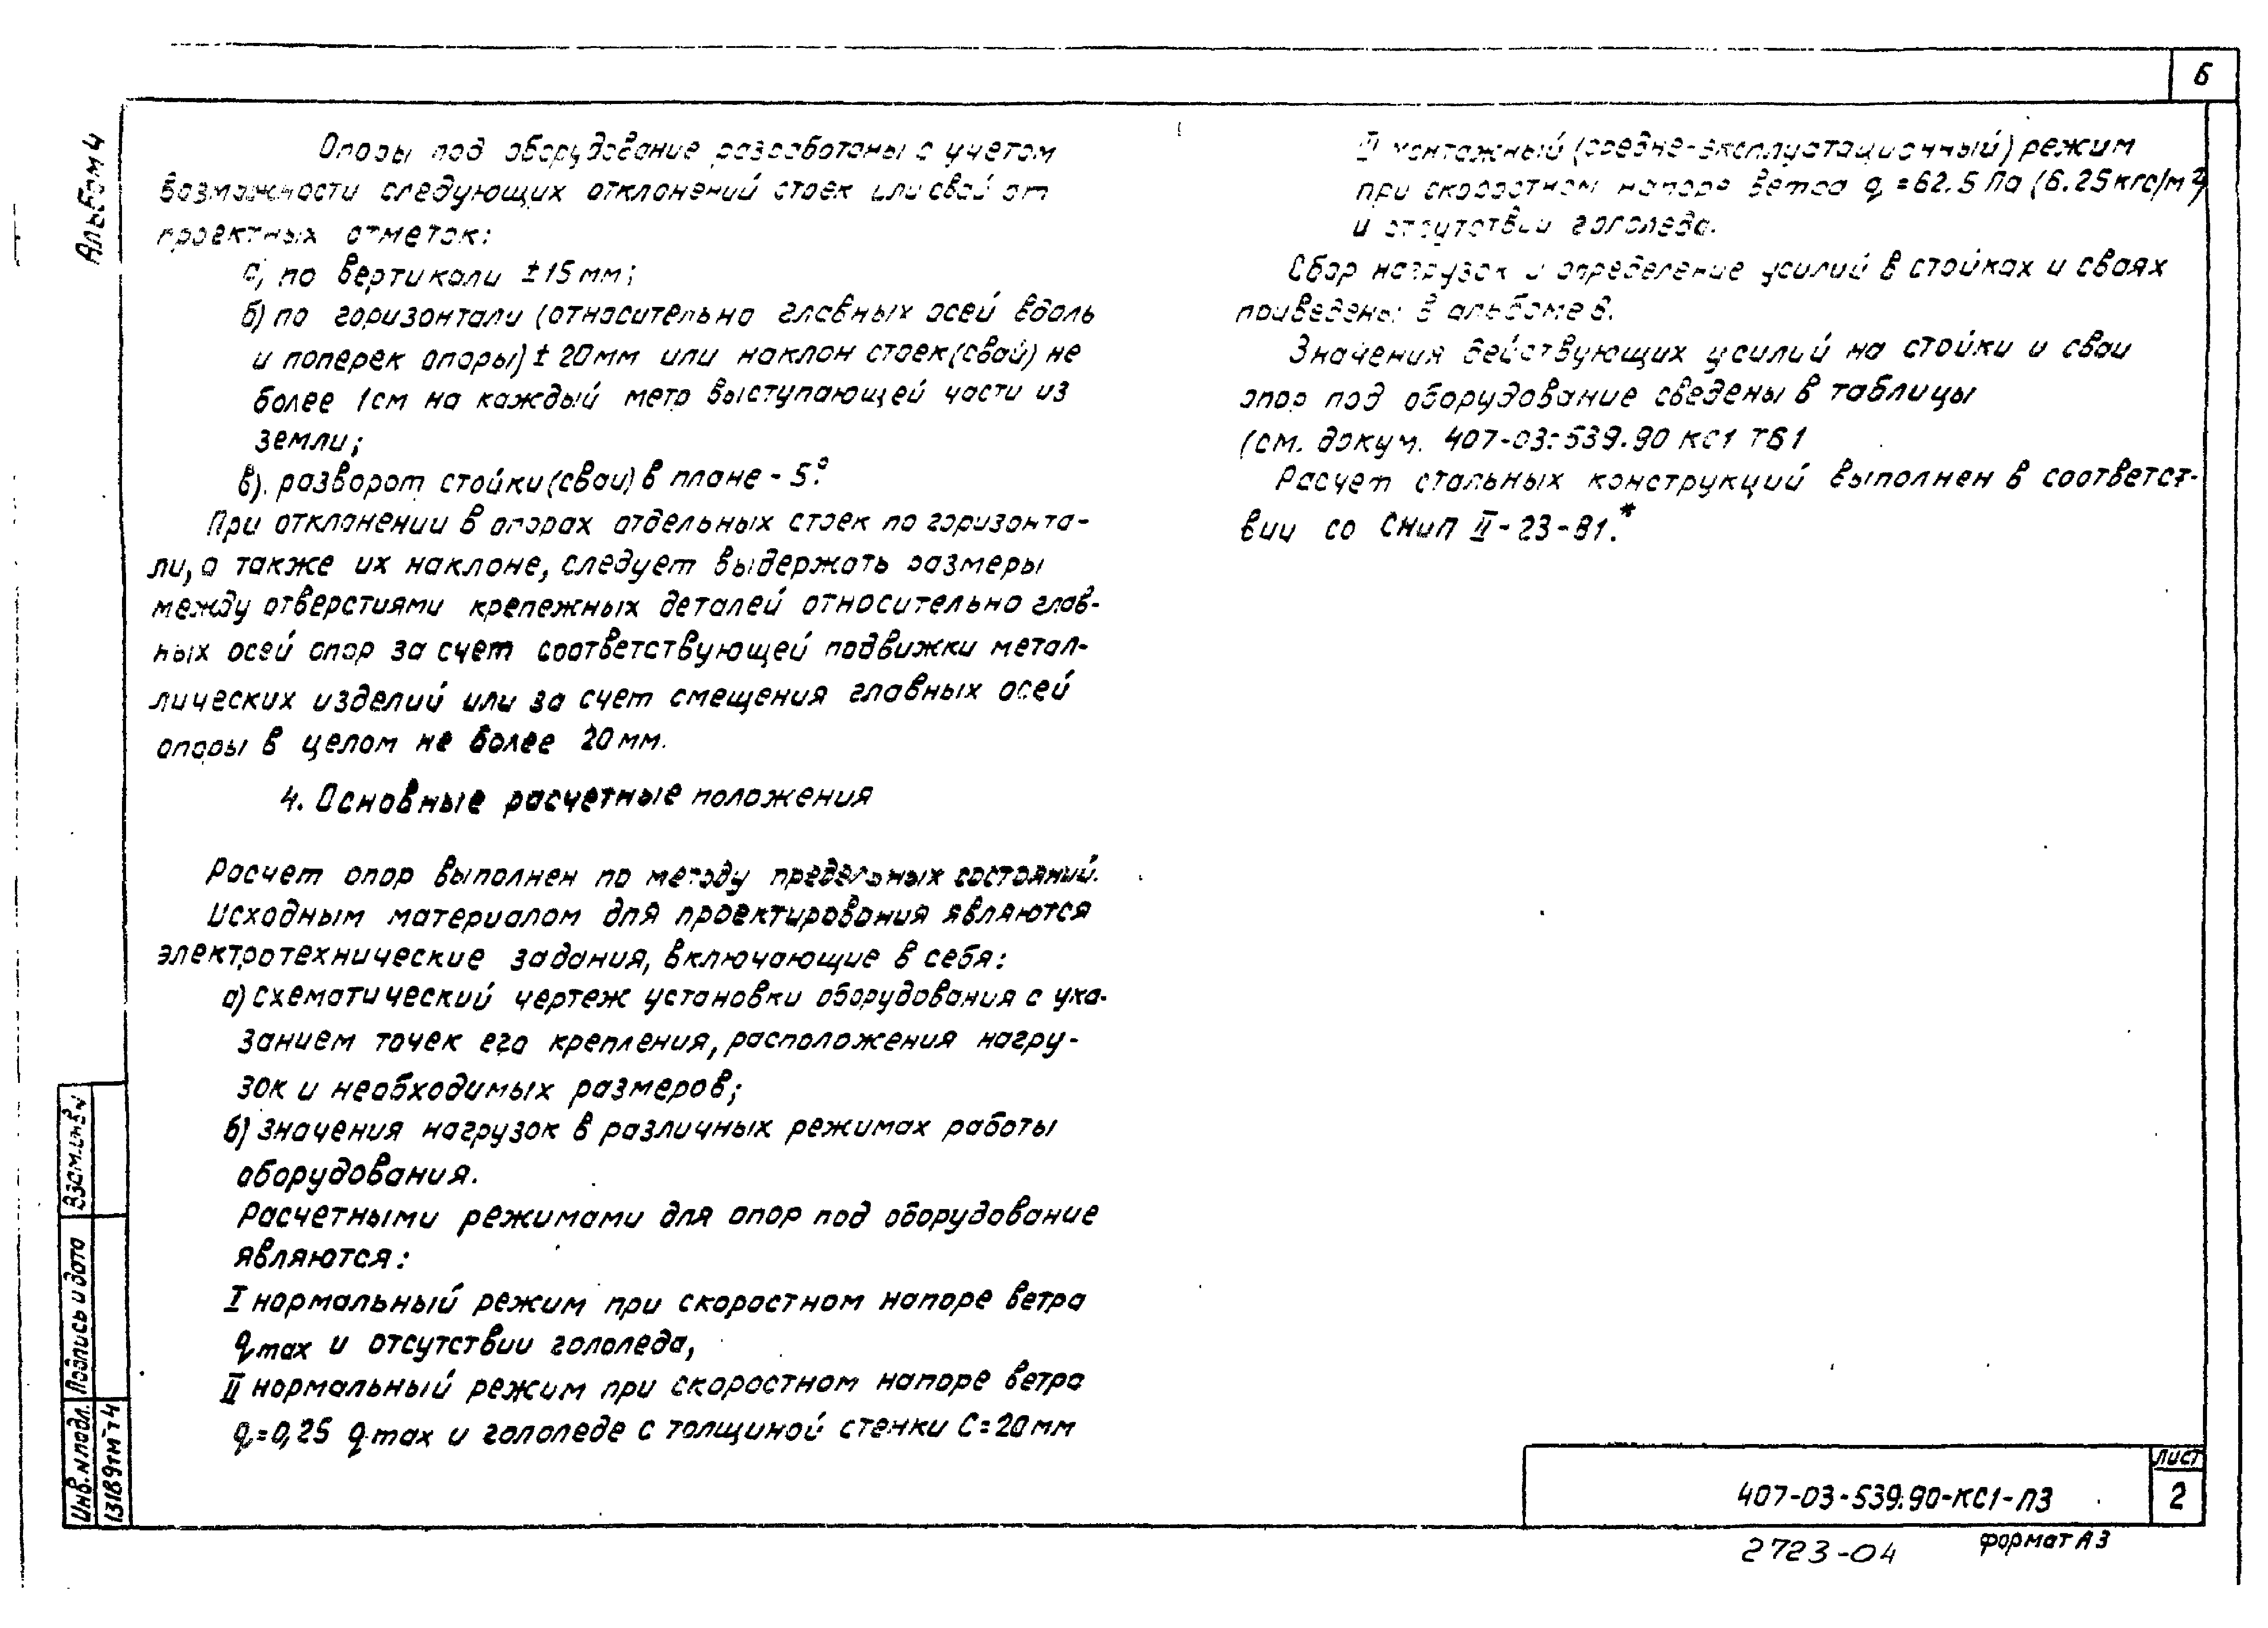 6
Альбом 4
Опоры под оборудование разработаны с учетом
возможности следующих отклонений стоек или свай от
проектных отметок:
а) по вертикали ±15мм;
б) по горизонтали (относительно главных осей вдоль
и поперек опоры) ± 20мм или наклон стоек (свай) не
более 1см на каждый метр выступающей части из
земли;
в). разворот стойки (сваи) в плане - 5°.
При отклонении в опорах отдельных стоек по горизонта-
ли, а также их наклоне, следует выдержать размеры
между отверстиями крепежных деталей относительно глав-
ных осей опор за счет соответствующей подвижки метал-
лических изделий или за счет смещения главных осей
опоры в целом не более 20мм.
4. Основные расчетные положения
Расчет опор выполнен по методу предельных состояний.
Исходным материалом для проектирования являются
электротехнические задания, включающие в себя:
а) схематический чертеж установки оборудования с ука-
занием точек его крепления, расположения нагру-
зок и необходимых размеров;
б) значения нагрузок в различных режимах работы
оборудования.
Расчетными режимами для опор под оборудование
являются:
I нормальный режим при скоростном напоре ветра
qmax и отсутствии гололеда,
II нормальный режим при скоростном напоре ветра
q=0,25 qmax и гололеде с толщиной стенки С=20мм
монтажный (средне-эксплуатационный) режим
при скоростном напоре ветра q=62.5 Па (6.25кгс/м²)
и отсутствии гололеда.
Сбор нагрузок и определение усилий в стойках и сваях
приведены в альбоме 6.
Значения действующих усилий на стойки и сваи
опор под оборудование сведены в таблицы
(см. докум. 407-03-539.90 КС1 ТБ1
Расчет стальных конструкций выполнен в соответст-
вии со СНиП II-23-81.*
Взам.инв.N
Подпись и дата
Инв.N подл.
13189тм-т4
407-03-539.90-КС1-ПЗ
Лист
2
2723-04
формат А3